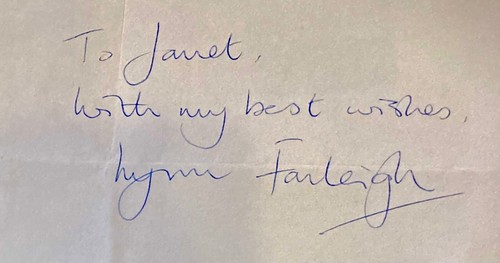 To Janet,
With my best wishes,
Lynn Farleigh